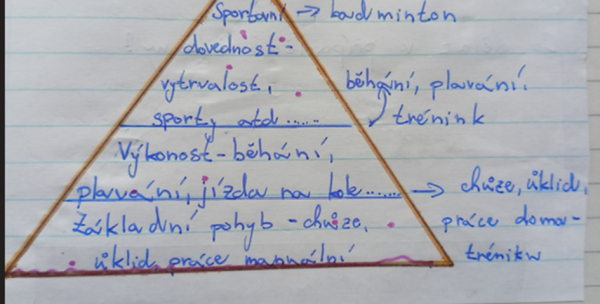 Sportovní → badminton
dovednost-
vytrvalost,
běhání, plavání.
sporty atd......
trénink
Výkonost-běhání,
plavání, jízda na kole.......
→ chůze, úklid,
Základní pohyb - chůze,
práce doma-
úklid, práce manuální
tréninkw